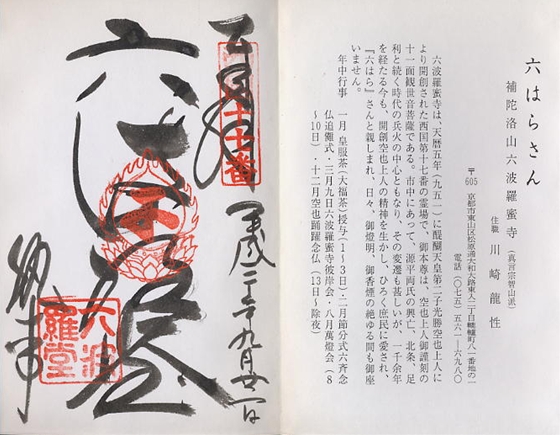 六はらさん
補陀洛山六波羅蜜寺（真言宗智山派）
住職 川崎龍性
〒605 京都市東山区松原通大和大路東入二丁目轆轤町八一番地の一
電話（〇七五）五六一―六九八〇
六波羅蜜寺は、天暦五年（九五一）に醍醐天皇第二子光勝空也上人に
より開創された西国第十七番の霊場で、御本尊は、空也上人御謹刻の
十一面観世音菩薩である。市中にあって、源平両氏の興亡、北条、足
利と続く時代の兵火の中心ともなり、その変遷も甚しいが、一千余年
を経たる今も、開創空也上人の精神を生かし、ひろく庶民に愛され、
『六はら』さんと親しまれ、日々、御燈明、御香煙の絶ゆる間も御座
いません。
年中行事 一月 皇服茶（大福茶）授与（1〜3日）・二月節分式六斉念
仏追儺式・三月九日六波羅蜜寺彼岸会・八月萬燈会（8
〜10日）・十二月空也踊躍念仏（13日〜除夜）
十七番
平成二十年九月廿一日
六
六波羅堂